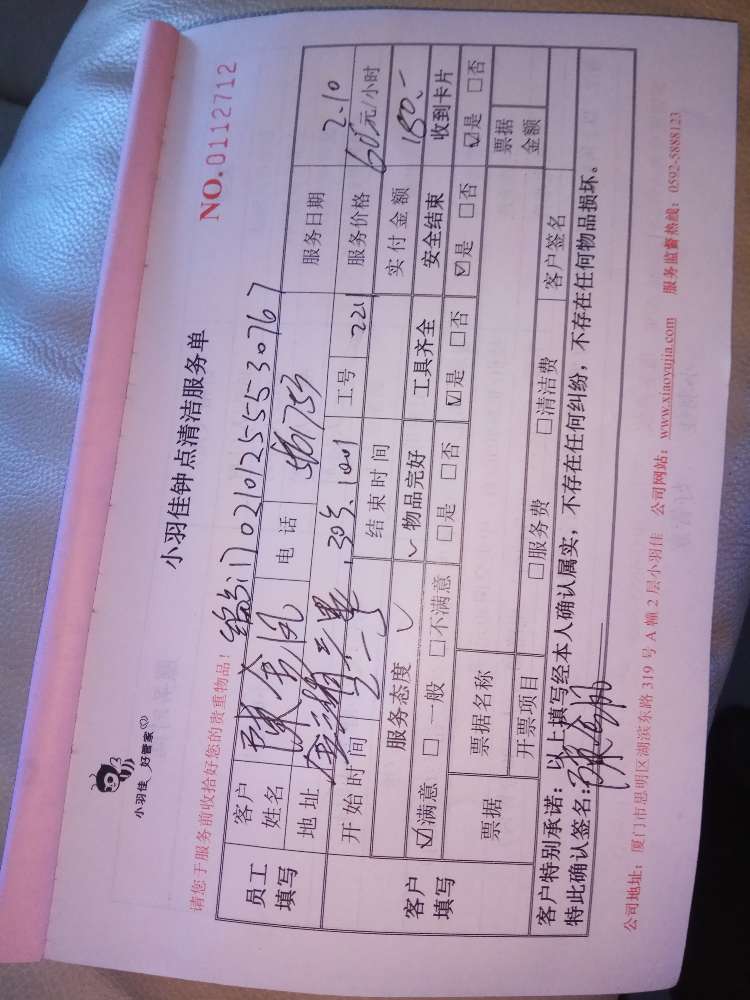 小羽佳 好管家
小羽佳钟点清洁服务单
NO.0112712
请您于服务前收拾好您的贵重物品!
17021012555530767
员工填写
客户姓名 陳金凤 电话 5161753 服务日期 2.10
地址 305.1001 工号 221 服务价格 60元/小时
客户填写
开始时间 结束时间 实付金额 180.-
服务态度 ✓ ✓ 物品完好 工具齐全 安全结束 收到卡片
☑满意 □一般 □不满意 □是 □否 ☑是 □否 ☑是 □否 ☑是 □否
票据 票据名称 票据金额
开票项目 □服务费 □清洁费 客户签名
客户特别承诺:以上填写经本人确认属实,不存在任何纠纷,不存在任何物品损坏。
特此确认签名:
公司地址:厦门市思明区湖滨东路319号A幢2层小羽佳 公司网站:www.xiaoyujia.com 服务监督热线:0592-5888123